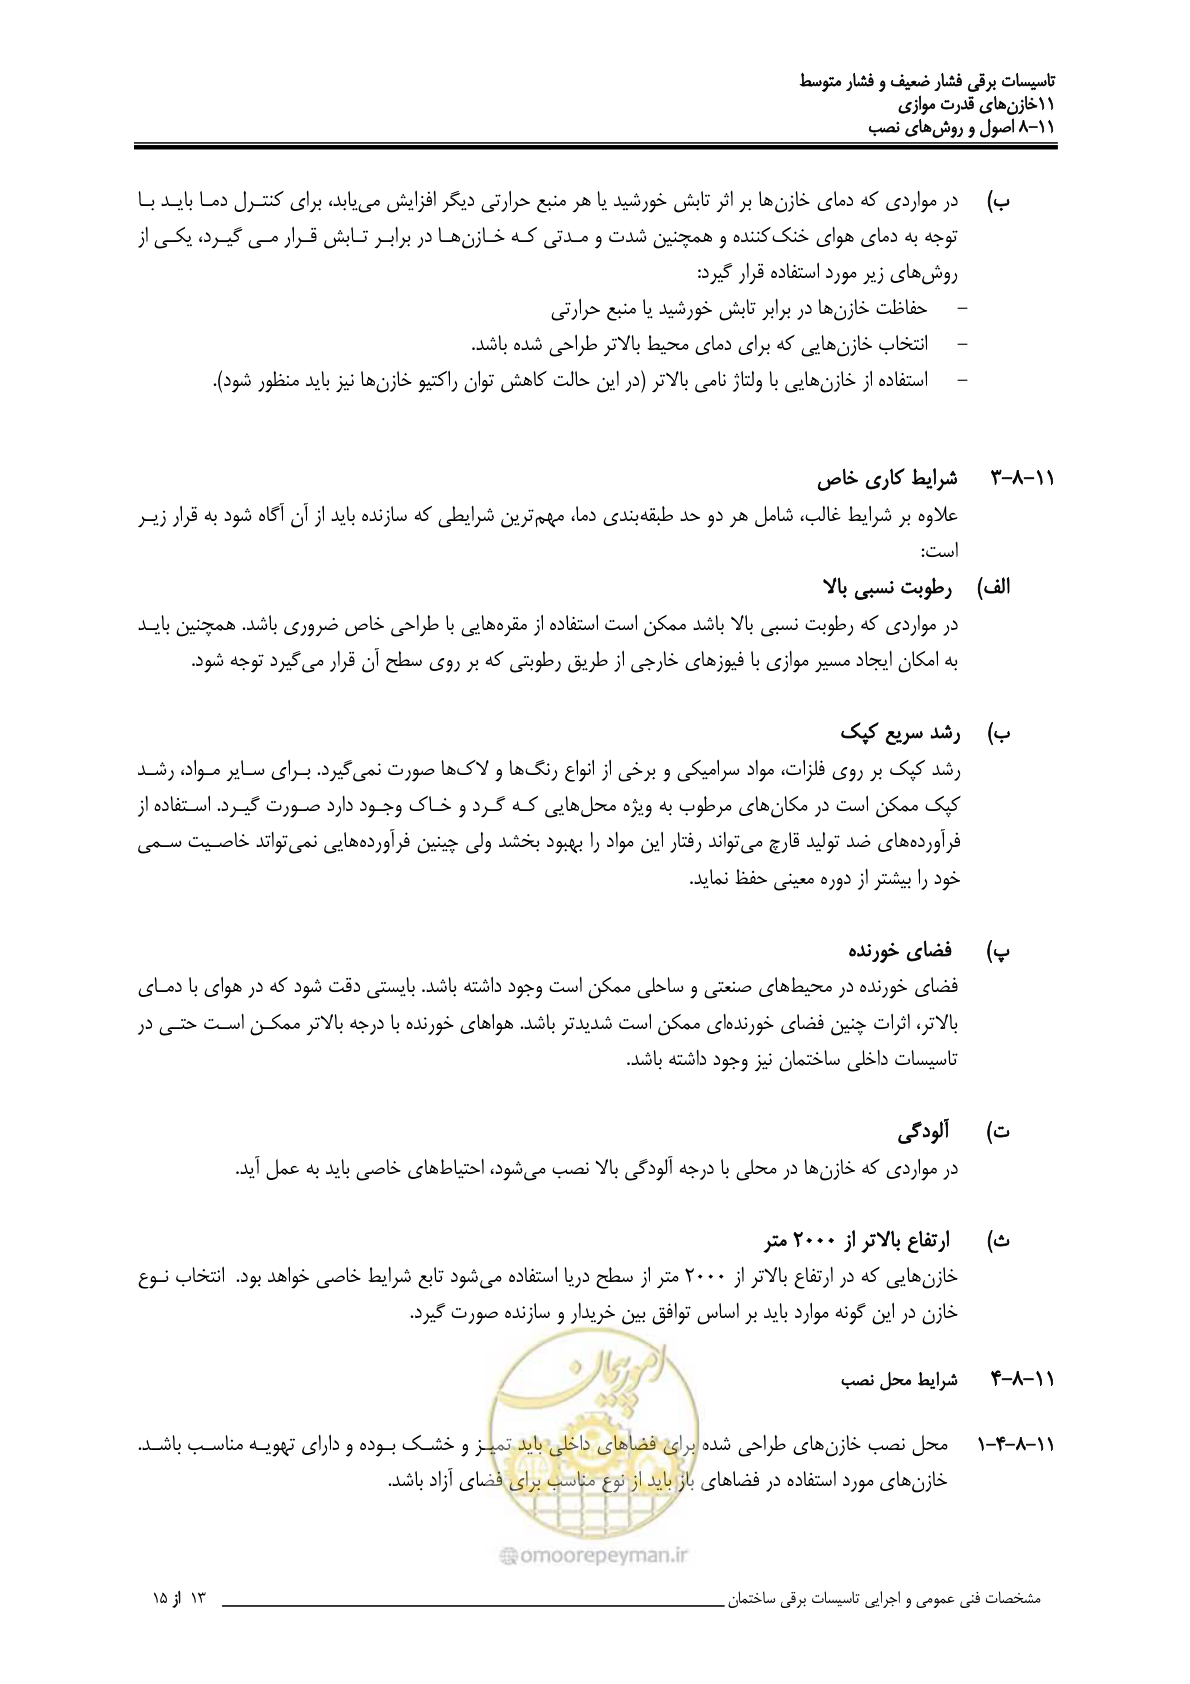 تاسیسات برقی فشار ضعیف و فشار متوسط
۱۱خازن‌های قدرت موازی
۸-۱۱ اصول و روش‌های نصب
ب) در مواردی که دمای خازن‌ها بر اثر تابش خورشید یا هر منبع حرارتی دیگر افزایش می‌یابد، برای کنترل دما باید با
توجه به دمای هوای خنک‌کننده و همچنین شدت و مدتی که خازن‌ها در برابر تابش قرار می گیرد، یکی از
روش‌های زیر مورد استفاده قرار گیرد:
– حفاظت خازن‌ها در برابر تابش خورشید یا منبع حرارتی
– انتخاب خازن‌هایی که برای دمای محیط بالاتر طراحی شده باشد.
– استفاده از خازن‌هایی با ولتاژ نامی بالاتر (در این حالت کاهش توان راکتیو خازن‌ها نیز باید منظور شود).
۳-۸-۱۱ شرایط کاری خاص
علاوه بر شرایط غالب، شامل هر دو حد طبقه‌بندی دما، مهم‌ترین شرایطی که سازنده باید از آن آگاه شود به قرار زیر
است:
الف) رطوبت نسبی بالا
در مواردی که رطوبت نسبی بالا باشد ممکن است استفاده از مقره‌هایی با طراحی خاص ضروری باشد. همچنین باید
به امکان ایجاد مسیر موازی با فیوزهای خارجی از طریق رطوبتی که بر روی سطح آن قرار می‌گیرد توجه شود.
ب) رشد سریع کپک
رشد کپک بر روی فلزات، مواد سرامیکی و برخی از انواع رنگ‌ها و لاک‌ها صورت نمی‌گیرد. برای سایر مواد، رشد
کپک ممکن است در مکان‌های مرطوب به ویژه محل‌هایی که گرد و خاک وجود دارد صورت گیرد. استفاده از
فرآورده‌های ضد تولید قارچ می‌تواند رفتار این مواد را بهبود بخشد ولی چینین فرآورده‌هایی نمی‌تواتد خاصیت سمی
خود را بیشتر از دوره معینی حفظ نماید.
پ) فضای خورنده
فضای خورنده در محیط‌های صنعتی و ساحلی ممکن است وجود داشته باشد. بایستی دقت شود که در هوای با دمای
بالاتر، اثرات چنین فضای خورنده‌ای ممکن است شدیدتر باشد. هواهای خورنده با درجه بالاتر ممکن است حتی در
تاسیسات داخلی ساختمان نیز وجود داشته باشد.
ت) آلودگی
در مواردی که خازن‌ها در محلی با درجه آلودگی بالا نصب می‌شود، احتیاط‌های خاصی باید به عمل آید.
ث) ارتفاع بالاتر از ۲۰۰۰ متر
خازن‌هایی که در ارتفاع بالاتر از ۲۰۰۰ متر از سطح دریا استفاده می‌شود تابع شرایط خاصی خواهد بود. انتخاب نوع
خازن در این گونه موارد باید بر اساس توافق بین خریدار و سازنده صورت گیرد.
امور پیمان
۴-۸-۱۱ شرایط محل نصب
۱-۴-۸-۱۱ محل نصب خازن‌های طراحی شده برای فضاهای داخلی باید تمیز و خشک بوده و دارای تهویه مناسب باشد.
خازن‌های مورد استفاده در فضاهای باز باید از نوع مناسب برای فضای آزاد باشد.
@omoorepeyman.ir
مشخصات فنی عمومی و اجرایی تاسیسات برقی ساختمان ۱۳ از ۱۵